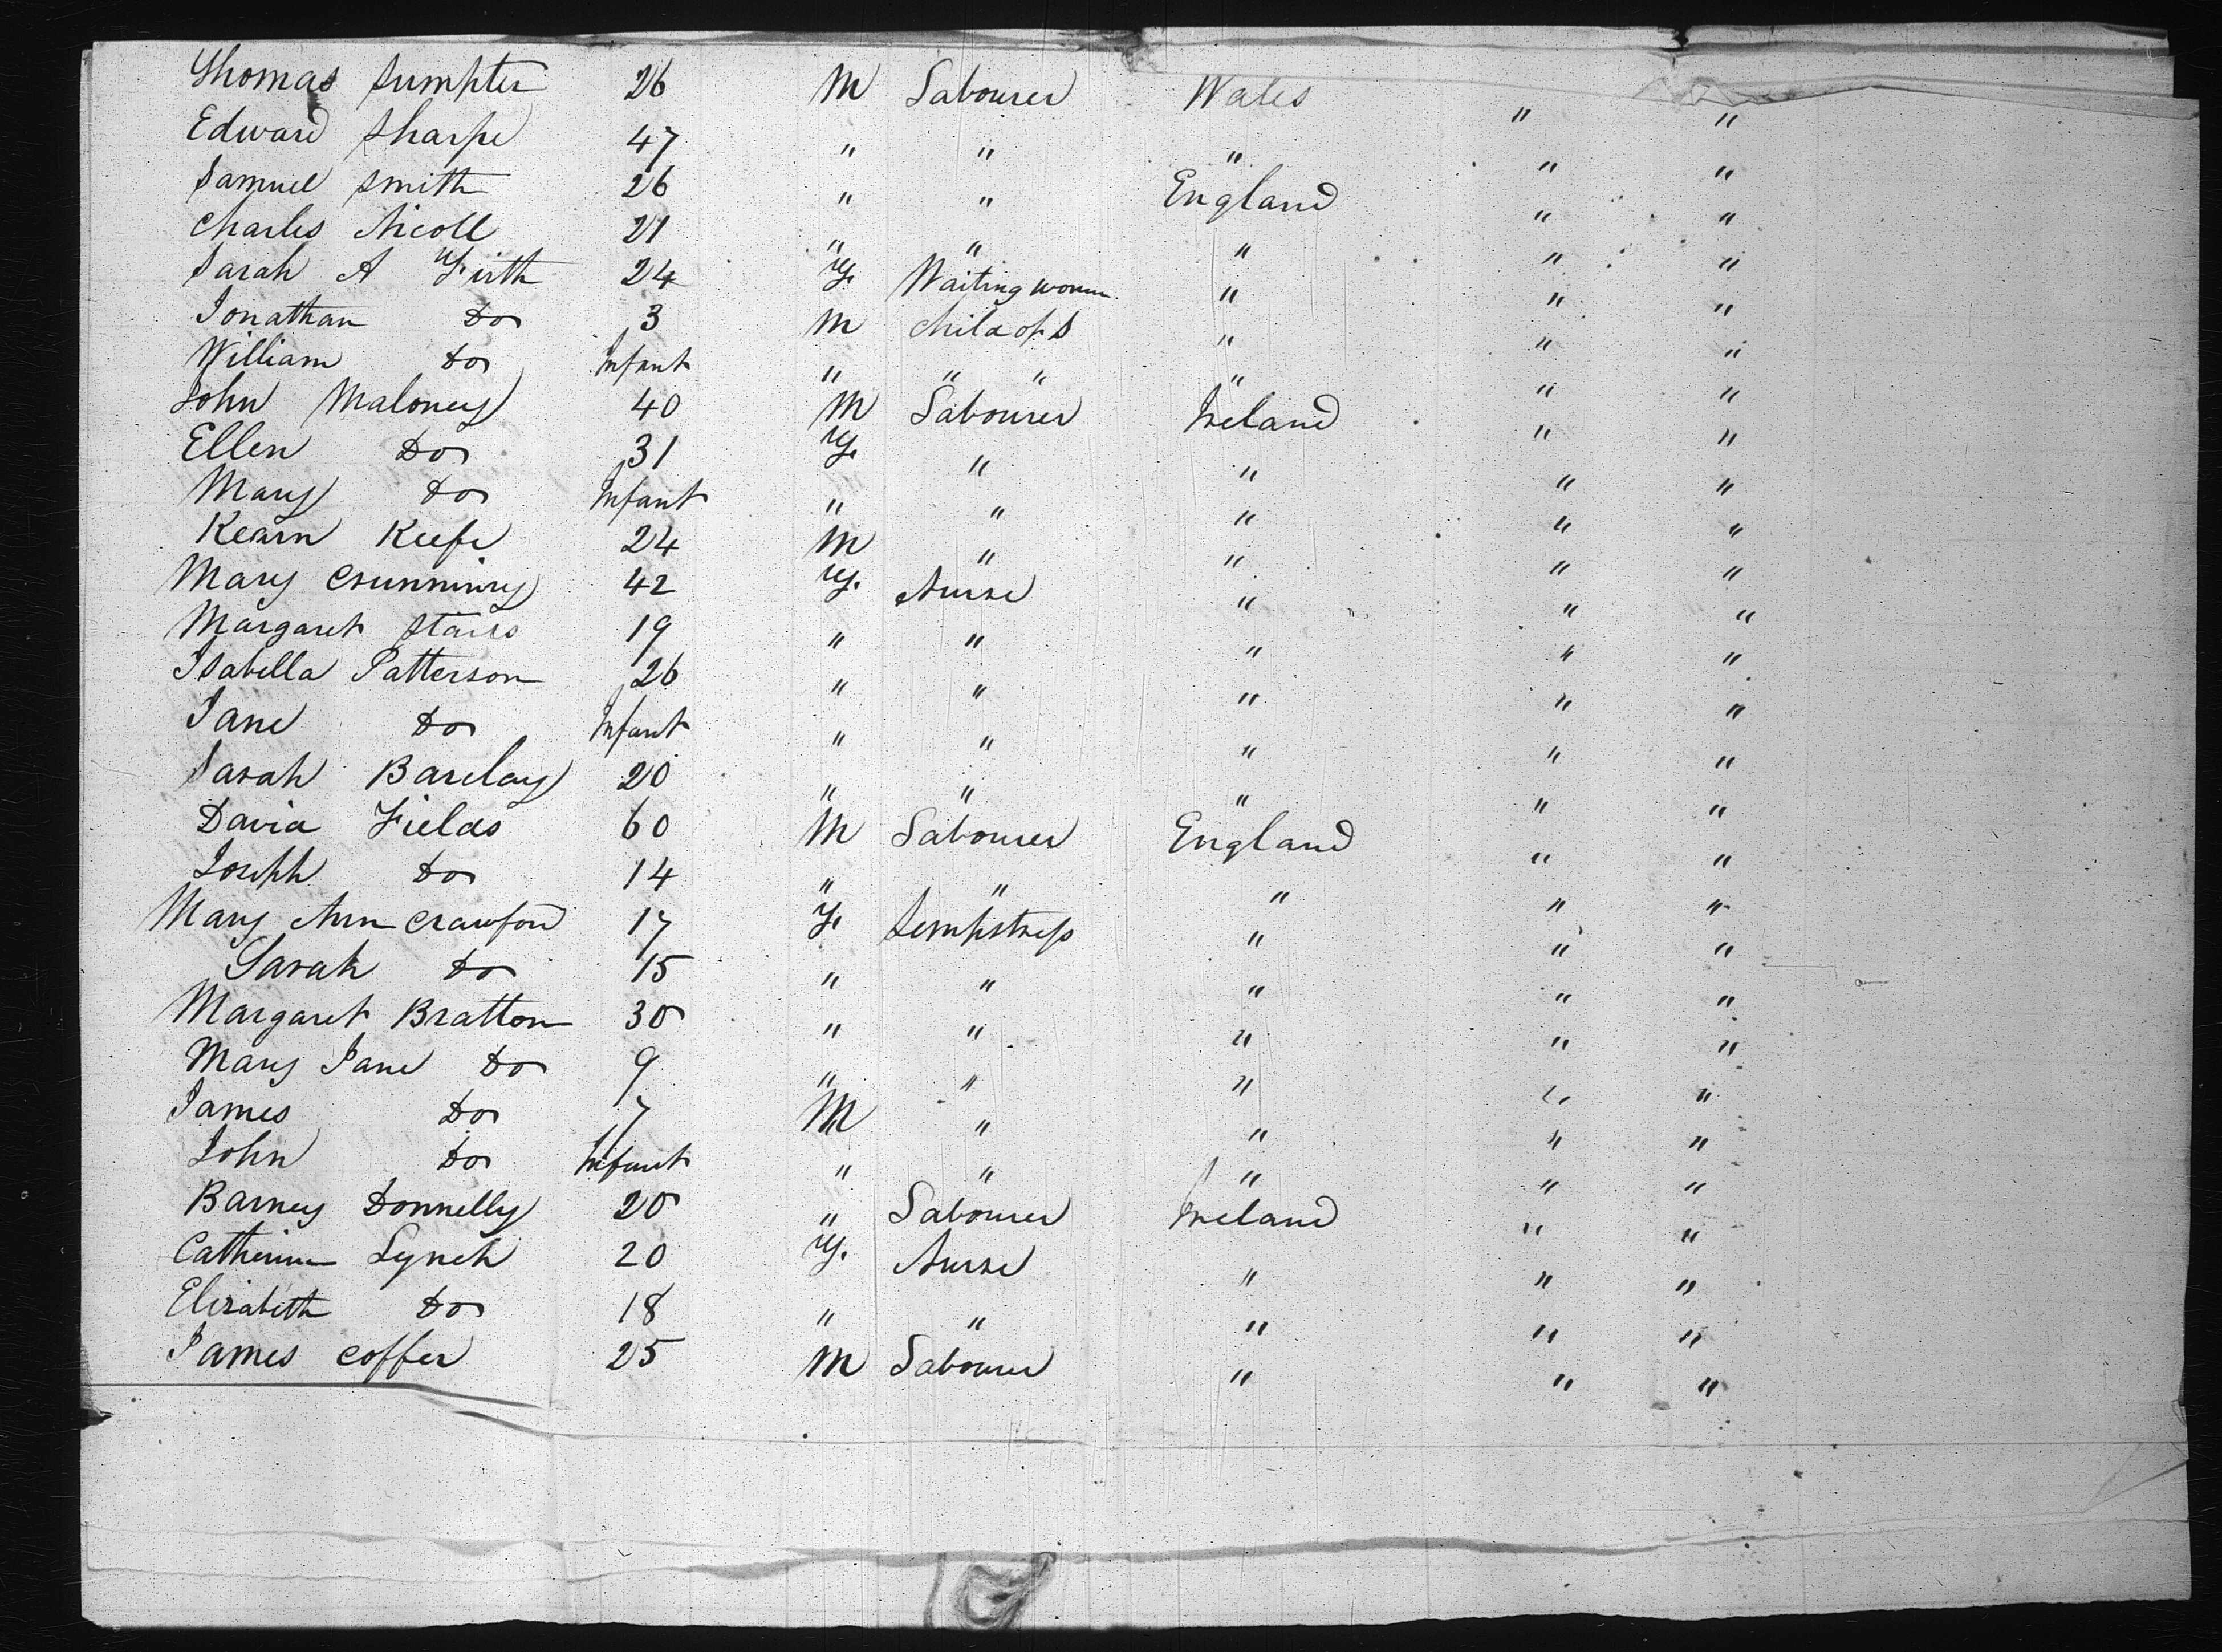 Thomas Sumpter 26 M Labourer Wales " "
Edward Sharpe 47 " " " " "
Samuel Smith 26 " " England " "
Charles Nicoll 21 " " " " "
Sarah A Firth 24 F. Waiting woman " " "
Jonathan Do 3 M Child of S " " "
William Do Infant " " " " " "
John Maloney 40 M Labourer Ireland " "
Ellen Do 31 F. " " " "
Mary Do Infant " " " " "
Kearn Keefe 24 M " " " "
Mary 42 F. Nurse " " "
Margaret Stairs 19 " " " " "
Isabella Patterson 26 " " " " "
Jane Do Infant " " " " "
Sarah Barclay 20 " " " " "
David Fields 60 M Labourer England " "
Joseph Do 14 " " " " "
Mary Ann Crawford 17 F. Sempstress " " "
Sarah Do 15 " " " " "
Margaret Bratton 30 " " " " "
Mary Jane Do 9 " " " " "
James Do 7 M " " " "
John Do Infant " " " " "
Barney Donnelly 20 " Labourer Ireland " "
Catherine Lynch 20 F. Nurse " " "
Elizabeth Do 18 " " " " "
James Coffer 25 M Labourer " " "